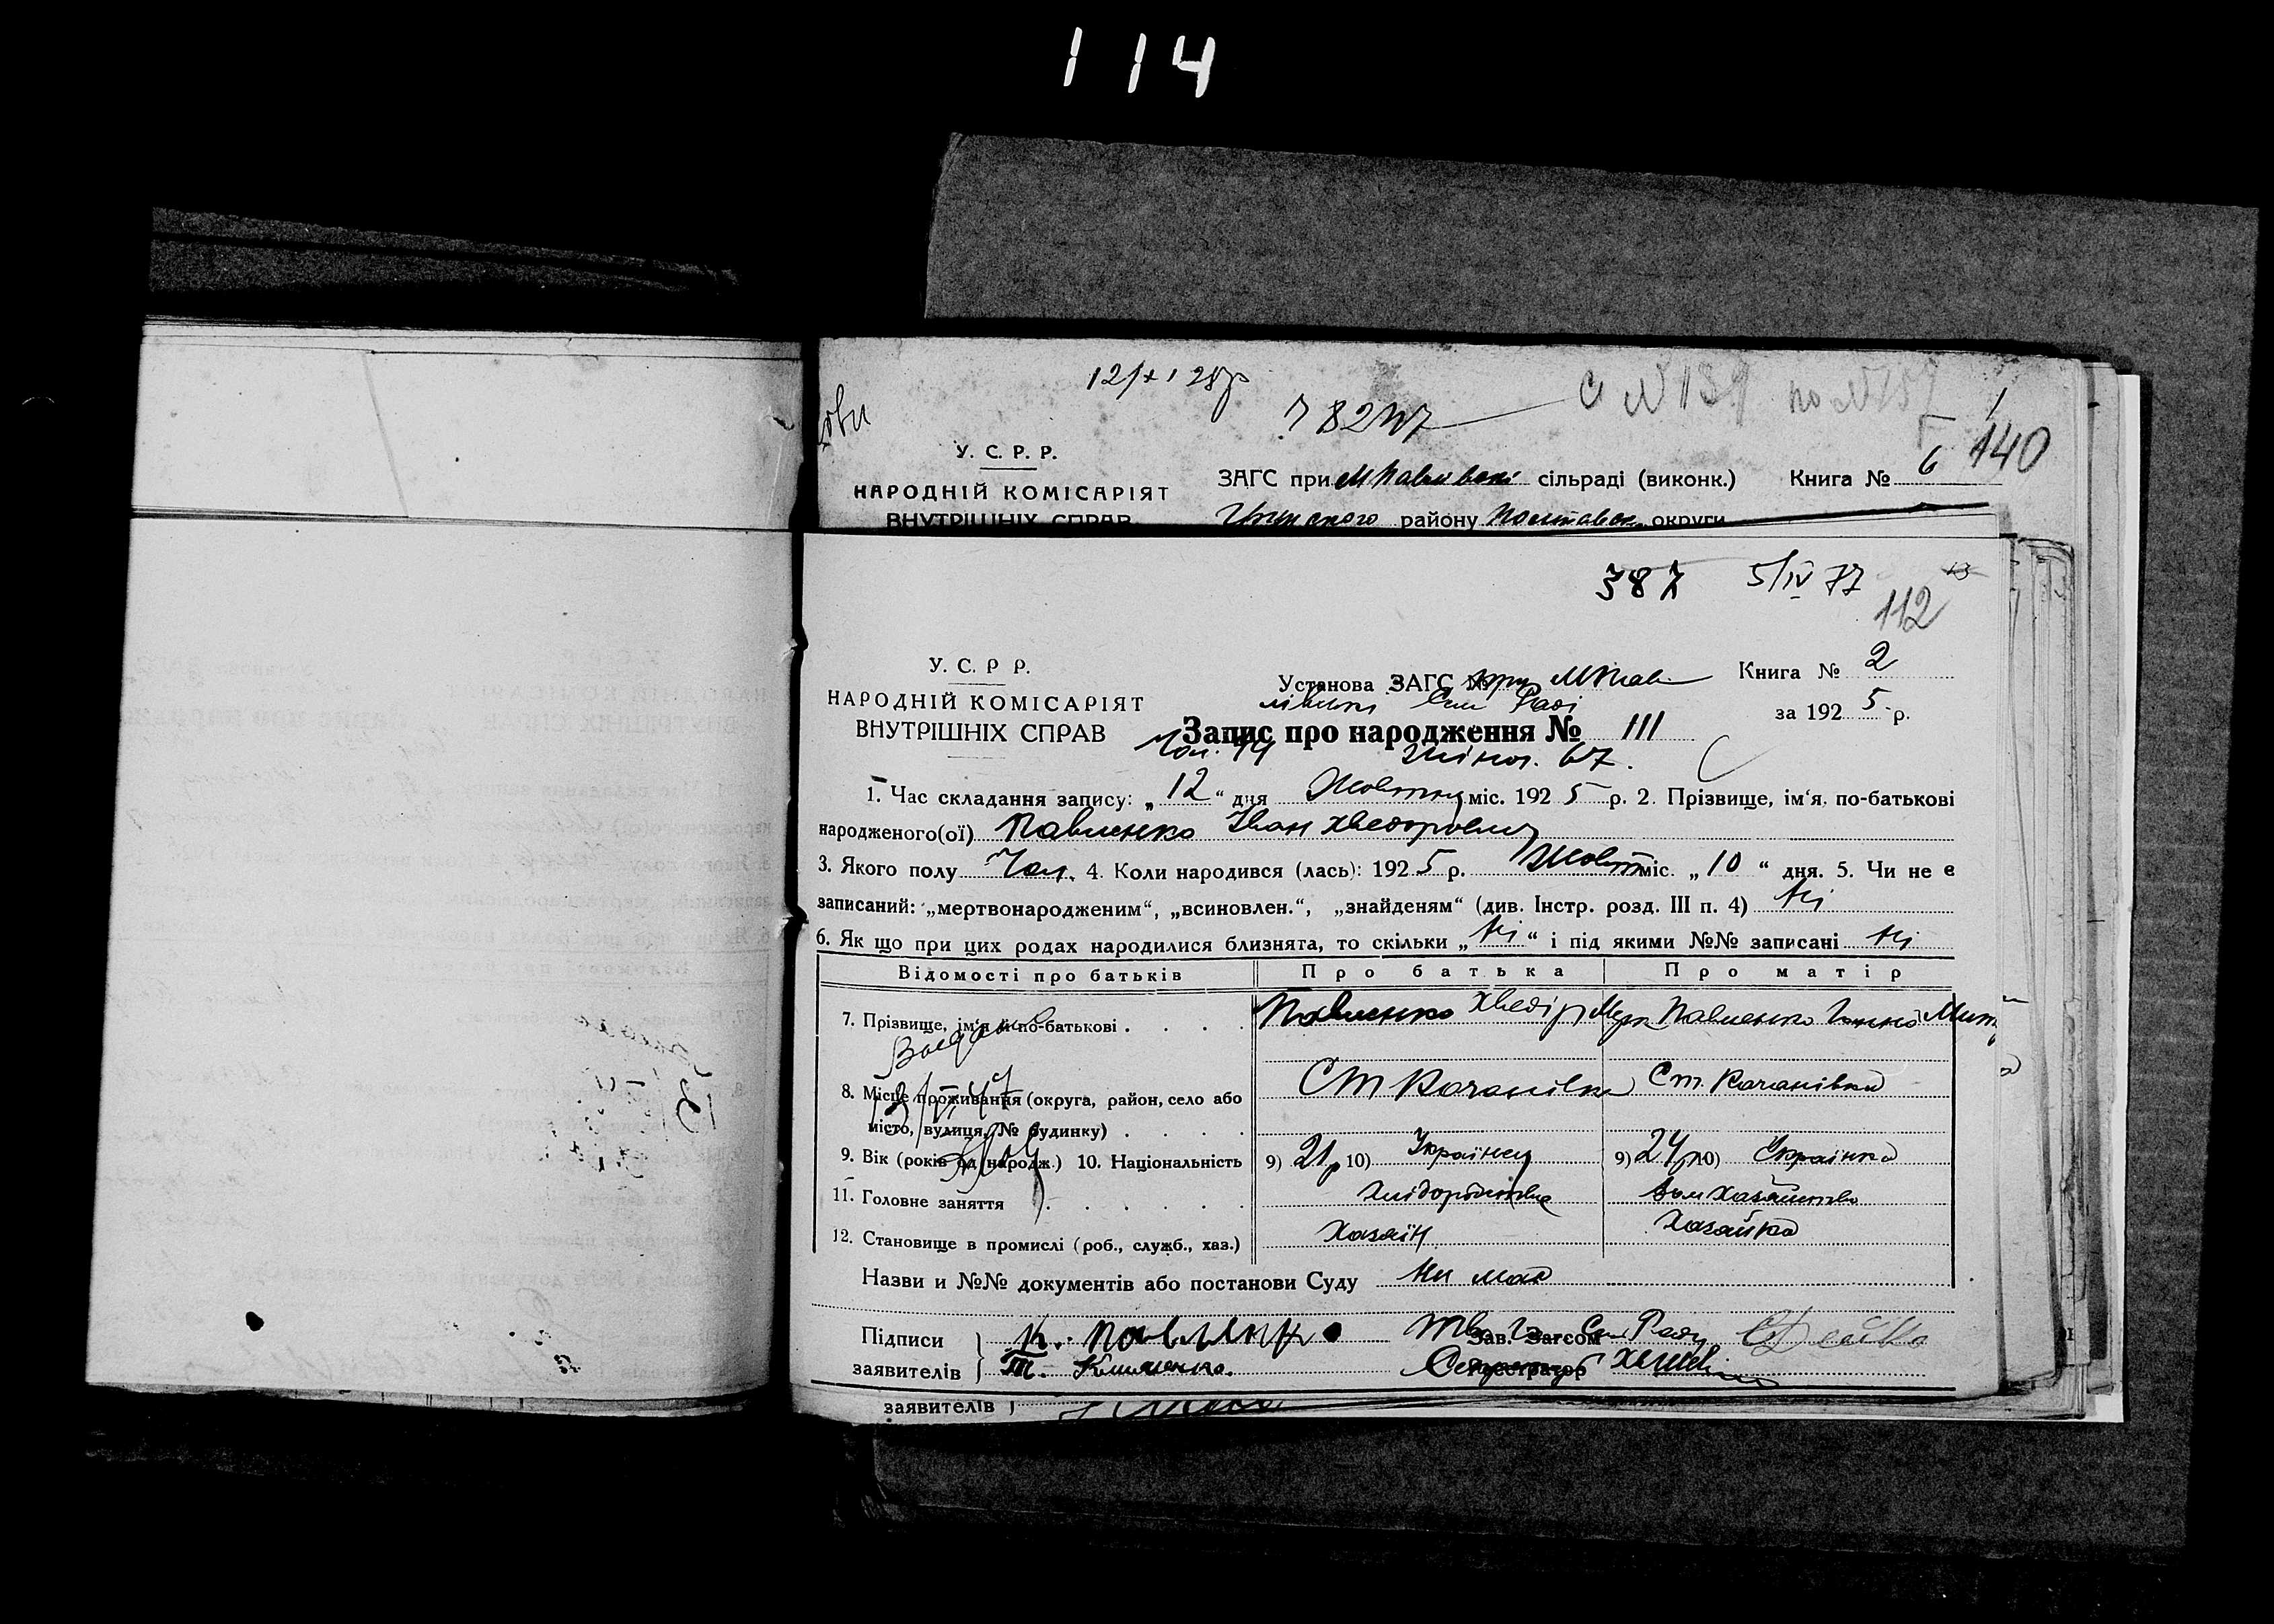 114
782
140
У. С. Р. Р.
НАРОДНІЙ КОМІСАРІЯТ
ВНУТРІШНІХ СПРАВ
ЗАГС при сільраді (виконк.) Книга № 6
району Полтавськ округи
387 5/IV 77
112
У. С. Р. Р.
НАРОДНІЙ КОМІСАРІЯТ
ВНУТРІШНІХ СПРАВ
Установа ЗАГС № при Книга № 2
Сіл Раді за 1925 р.
Запис про народження № 111
Чол. 44 Жіноч. 67.
1. Час складання запису: „12“ дня Жовтня міс. 1925 р. 2. Прізвище, ім'я, по-батькові
народженого(ої) Павленко Іван Хведорович
3. Якого полу Чол. 4. Коли народився (лась): 1925 р. Жовт міс. „10“ дня. 5. Чи не є
записаний: „мертвонародженим“, „всиновлен.“, „знайденям“ (див. Інстр. розд. III п. 4) Ні
6. Як що при цих родах народилися близнята, то скільки „Ні“ і під якими №№ записані Ні
Відомості про батьків Про батька Про матір
7. Прізвище, ім'я й по-батькові . . . . Павленко Хведір Павленко Ганна Мит
8. Місце проживання (округа, район, село або Ст Качанівка Ст. Качанівка
місто, вулиця, № будинку) . . . .
9. Вік (років од народж.) 10. Національність 9) 21р 10) Українец 9) 24р 10) Українка
11. Головне заняття . . . . . . Хліборобство
12. Становище в промислі (роб., служб., хаз.) Хазяїн Хазяйка
Назви и №№ документів або постанови Суду Ни має
Підписи К. Павленко Зав. Загсом
заявителів Т. Клименко. Реєстратор
заявителів